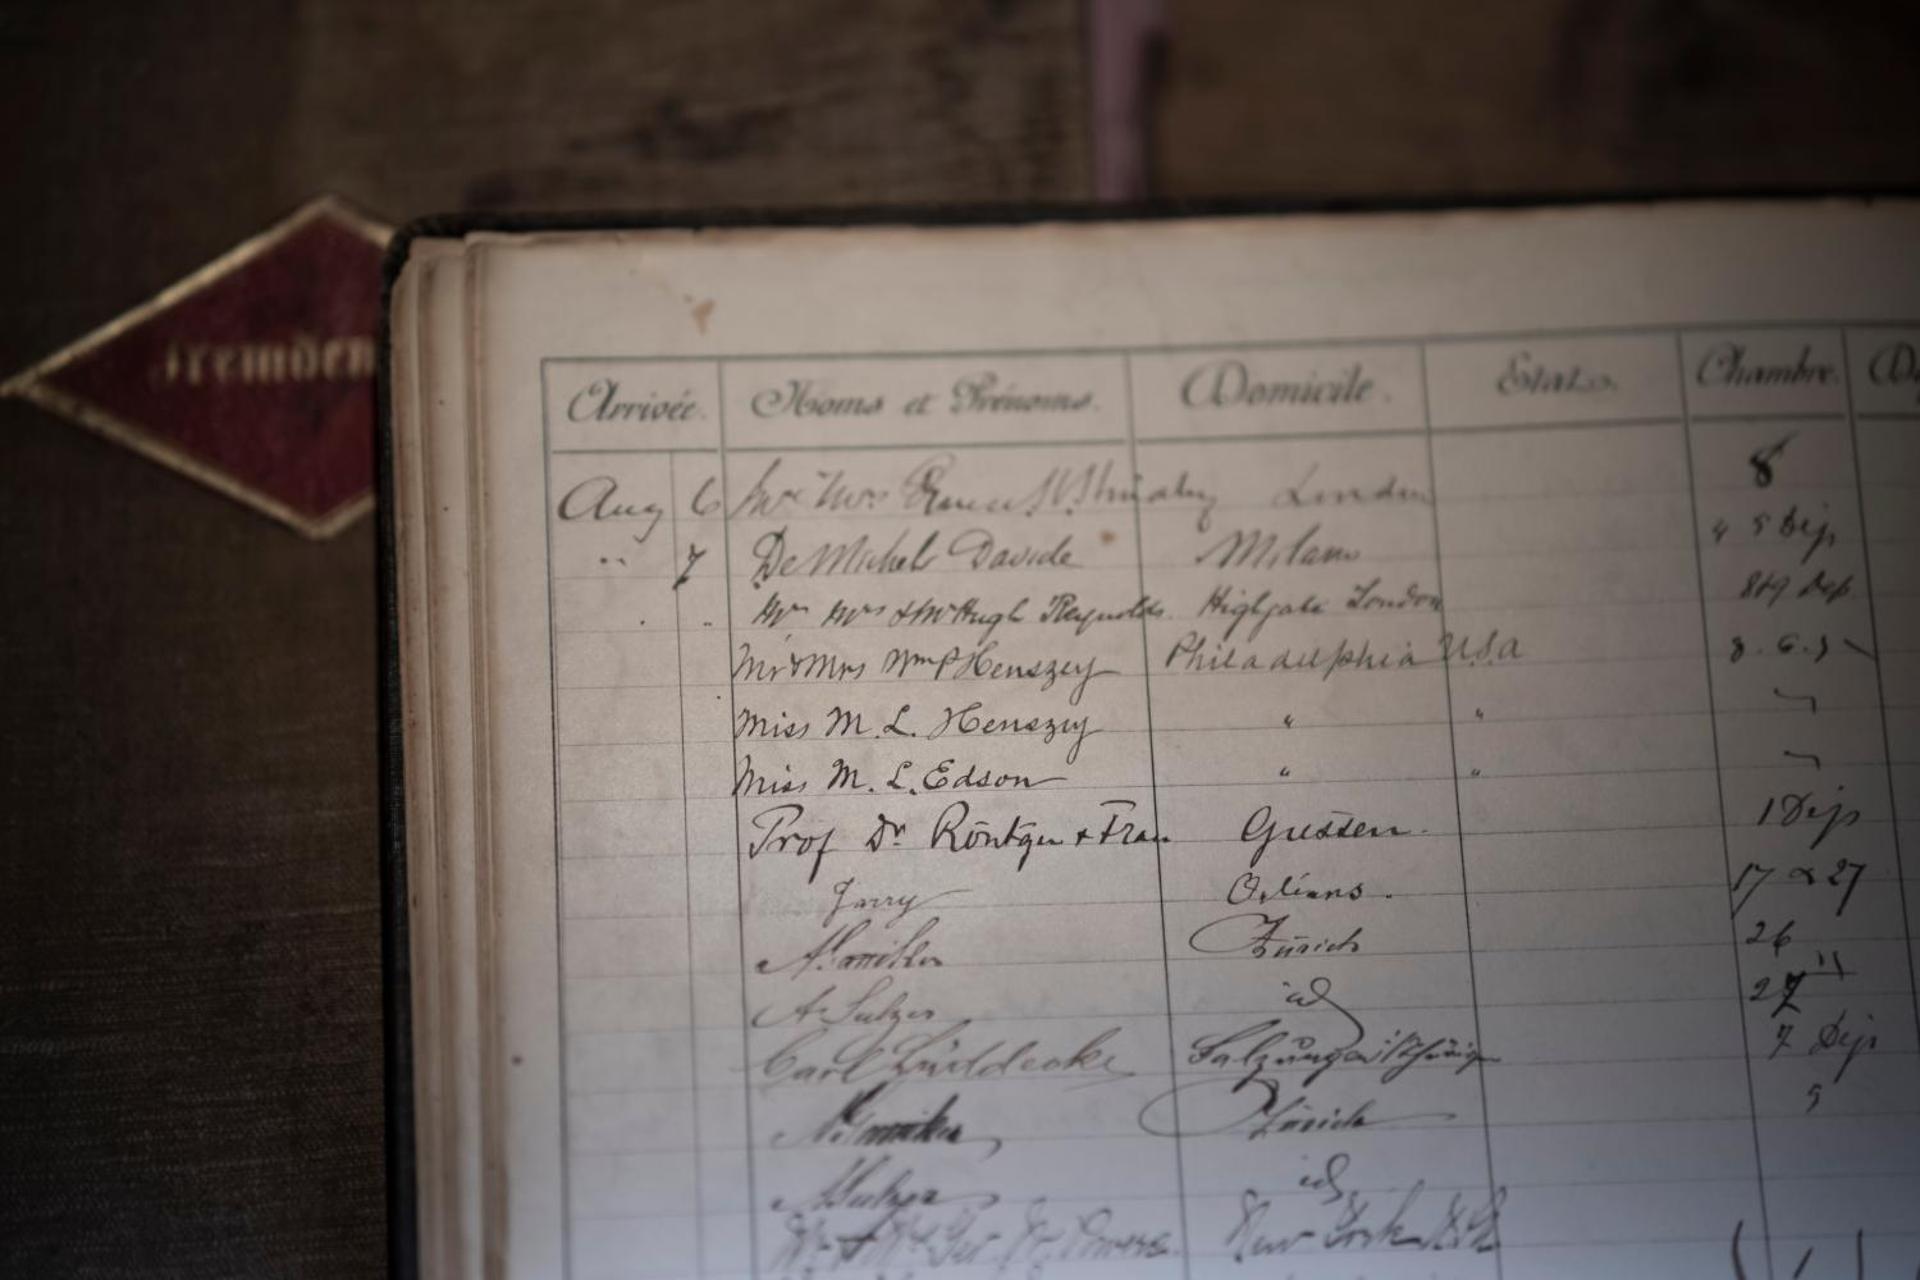 Fremden
Arrivée. Noms et Prénoms. Domicile. État. Chambre.
Aug 6 Mr & Mrs London 8
" 7 De Michel Davide Milano 5 Dep
Mr Mrs & Mr Hugh Reynolds. Highgate London 8&9 Dep
Mr & Mrs Wm P Henszey Philadelphia U.S.a 8.6.5
Miss M. L. Henszey " "
Miss M. L. Edson " "
Prof Dr Röntgen + Frau Giessen. 1 Dep
Jarry Orléans. 17 & 27
Zürich 26
A. Sulzer id 27
Carl Lüddecke Salzungen i/Thüringen 7 Dep
Zürich 5
A Sulzer id
New York